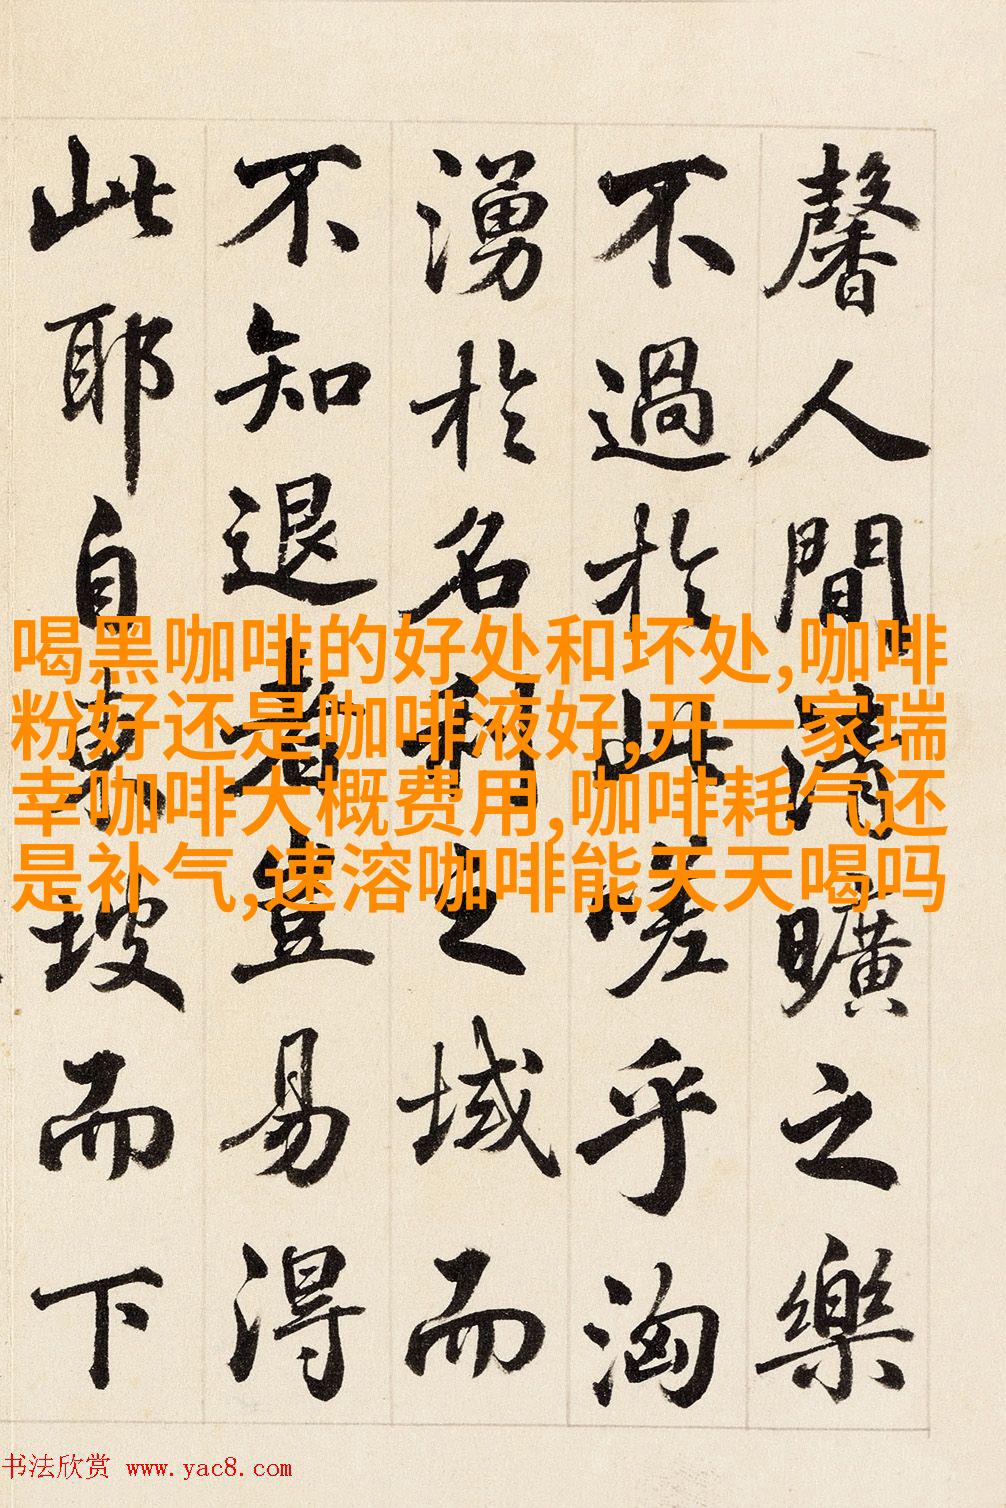 馨人間清曠之樂
不過於此嗟乎洶
湧於名利之域而
不知退者豈易得
此耶自東坡而下
喝黑咖啡的好处和坏处,咖啡
粉好还是咖啡液好,开一家瑞
幸咖啡大概费用,咖啡耗气还
是补气,速溶咖啡能天天喝吗
书法欣赏 www.yac8.com